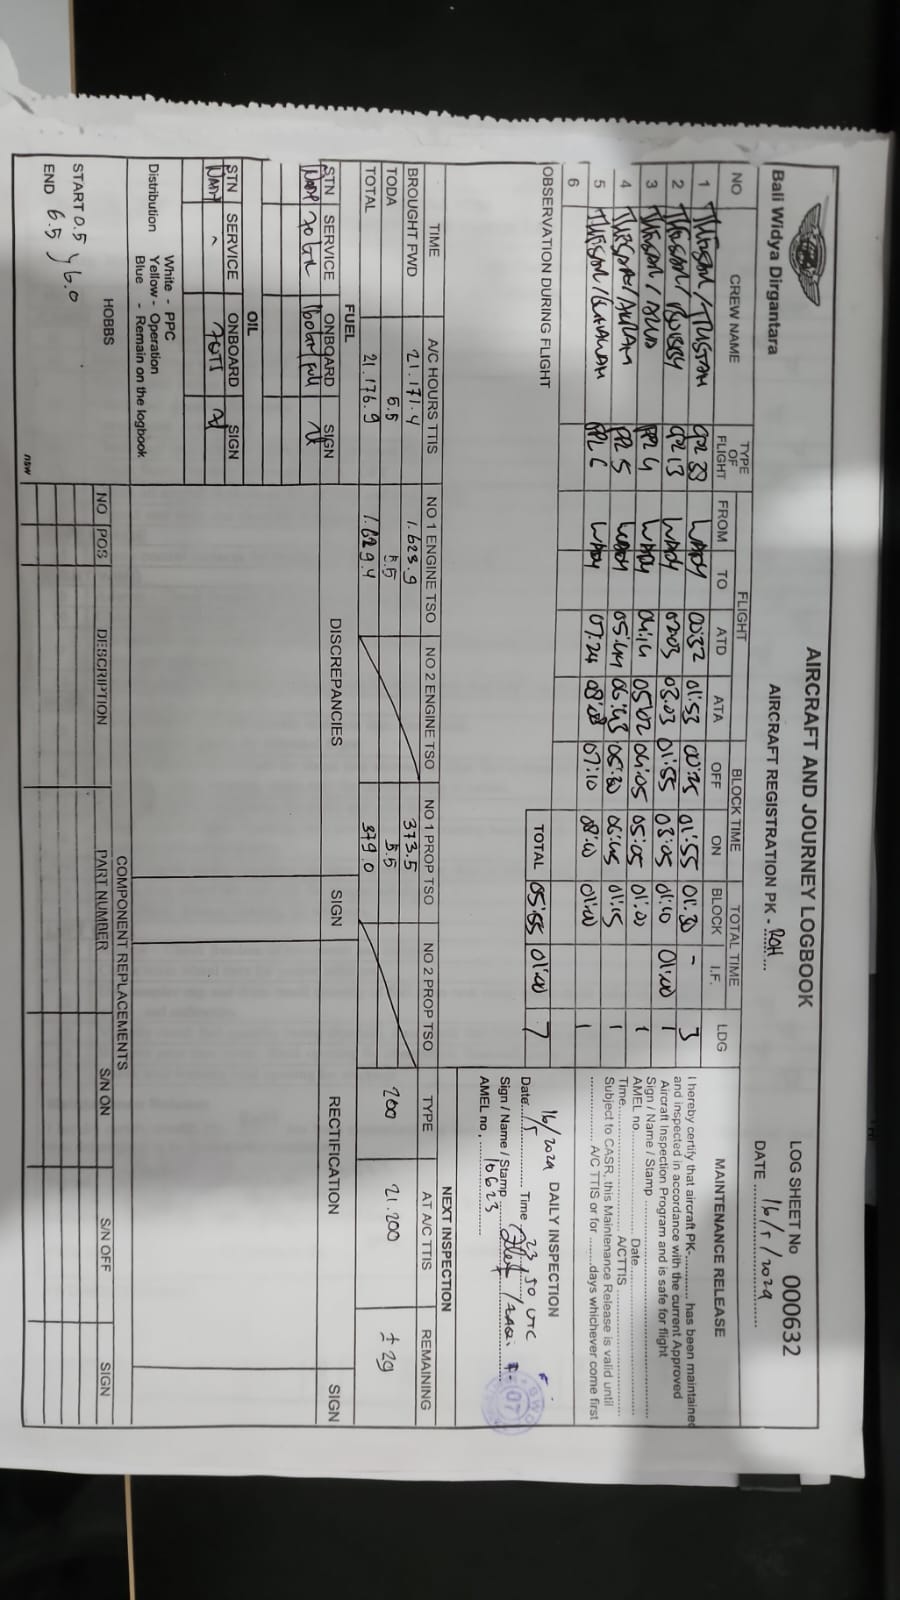 Bali Widya Dirgantara
AIRCRAFT AND JOURNEY LOGBOOK
AIRCRAFT REGISTRATION PK - ROH
LOG SHEET No 000632
DATE 16/5/2024
NO CREW NAME TYPE OF FLIGHT FLIGHT BLOCK TIME TOTAL TIME LDG
FROM TO ATD ATA OFF ON BLOCK I.F.
1 WADY 00:32 01:53 00:25 01:55 01:30 - 3
2 WADY 02:03 03.03 01:55 03:05 01:10 01:00 1
3 PPL 4 WADY 04:14 05:02 04:05 05:05 01:00 1
4 PPL 5 WADY 05:44 06:43 05:30 06:45 01:15 1
5 PPL 6 WADY 07:24 08:08 07:10 08:10 01:00 1
6
TOTAL 05:55 01:00 7
OBSERVATION DURING FLIGHT
MAINTENANCE RELEASE
I hereby certify that aircraft PK-............ has been maintained
and inspected in accordance with the current Approved
Aircraft Inspection Program and is safe for flight
Sign / Name / Stamp
AMEL no. Date
Time A/CTTIS
Subject to CASR, this Maintenance Release is valid until
A/C TTIS or for ........days whichever come first
DAILY INSPECTION
Date 16/5/2024 Time 23 50 UTC
Sign / Name / Stamp
AMEL no. 10623
TIME A/C HOURS TTIS NO 1 ENGINE TSO NO 2 ENGINE TSO NO 1 PROP TSO NO 2 PROP TSO
BROUGHT FWD 21.171.4 1.623.9 373.5
TODA 5.5 5.5 5.5
TOTAL 21.176.9 1.629.4 379.0
NEXT INSPECTION
TYPE AT A/C TTIS REMAINING
200 21.200 ± 29
FUEL
STN SERVICE ONBOARD SIGN
OIL
STN SERVICE ONBOARD SIGN
DISCREPANCIES SIGN RECTIFICATION SIGN
Distribution White - PPC
Yellow - Operation
Blue - Remain on the logbook
HOBBS
START 0.5
END 6.5
6.0
COMPONENT REPLACEMENTS
NO POS DESCRIPTION PART NUMBER S/N ON S/N OFF SIGN